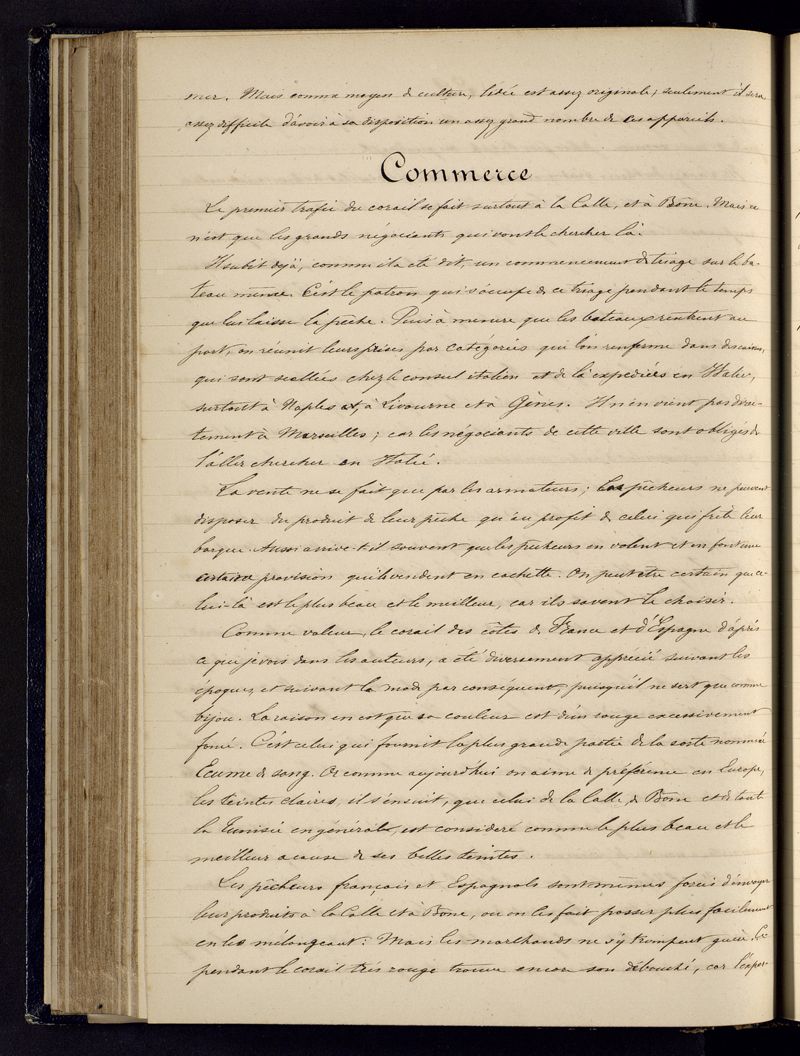 mer. Mais comme moyen de culture, l'idée est assez originale; seulement il sera
assez difficile d'avoir à sa disposition un assez grand nombre de ces appareils.
Commerce
Le premier trafic du corail se fait surtout à la Calle, et à Bône. Mais ce
n'est que les grands négociants qui vont le chercher là.
Il subit déjà, comme il a été dit, un commencement de triage sur le ba-
teau même. C'est le patron qui s'occupe de ce triage pendant le temps
que lui laisse la pêche. Puis à mesure que les bateaux rentrent au
port, on réunit leurs prises par catégories que l'on renferme dans des caisses,
qui sont scellées chez le consul italien et de là expédiées en Italie,
surtout à Naples et, à Livourne et à Gènes. Il n'en vient pas direc-
tement à Marseilles; car les négociants de cette ville sont obligés de
l'aller chercher en Italie.
La vente ne se fait que par les armateurs; les pêcheurs ne peuvent
disposer du produit de leur pêche qu'au profit de celui qui frète leur
barque. Aussi arrive-t-il souvent que les pêcheurs en volent et en font une
certaine provision qu'ils vendent en cachette. On peut être certain que ce-
lui-là est le plus beau et le meilleur, car ils savent le choisir.
Comme valeur, le corail des côtes de France et d'Espagne d'après
ce que je vois dans les auteurs, a été diversement apprécié suivant les
époques, et suivant la mode par conséquent, puisqu'il ne sert que comme
bijou. La raison en est que sa couleur est d'un rouge excessivement
foncé. C'est celui qui fournit la plus grande partie de la sorte nommée
Ecume de sang. Or comme aujourd'hui on aime de préférence en Europe,
les teintes claires, il s'ensuit, que celui de la Calle, de Bone et de toute
la Tunisie en générale, est consideré comme le plus beau et le
meilleur a cause de ses belles teintes.
Les pêcheurs français et Espagnols sont mêmes forcés d'envoyer
leur produits à la Calle et à Bône, ou on les fait passer plus facilement
en les mélangeant. Mais les marchands ne s'y trompent guère. Ce-
pendant le corail très rouge trouve encore son débouché, car l'expor-